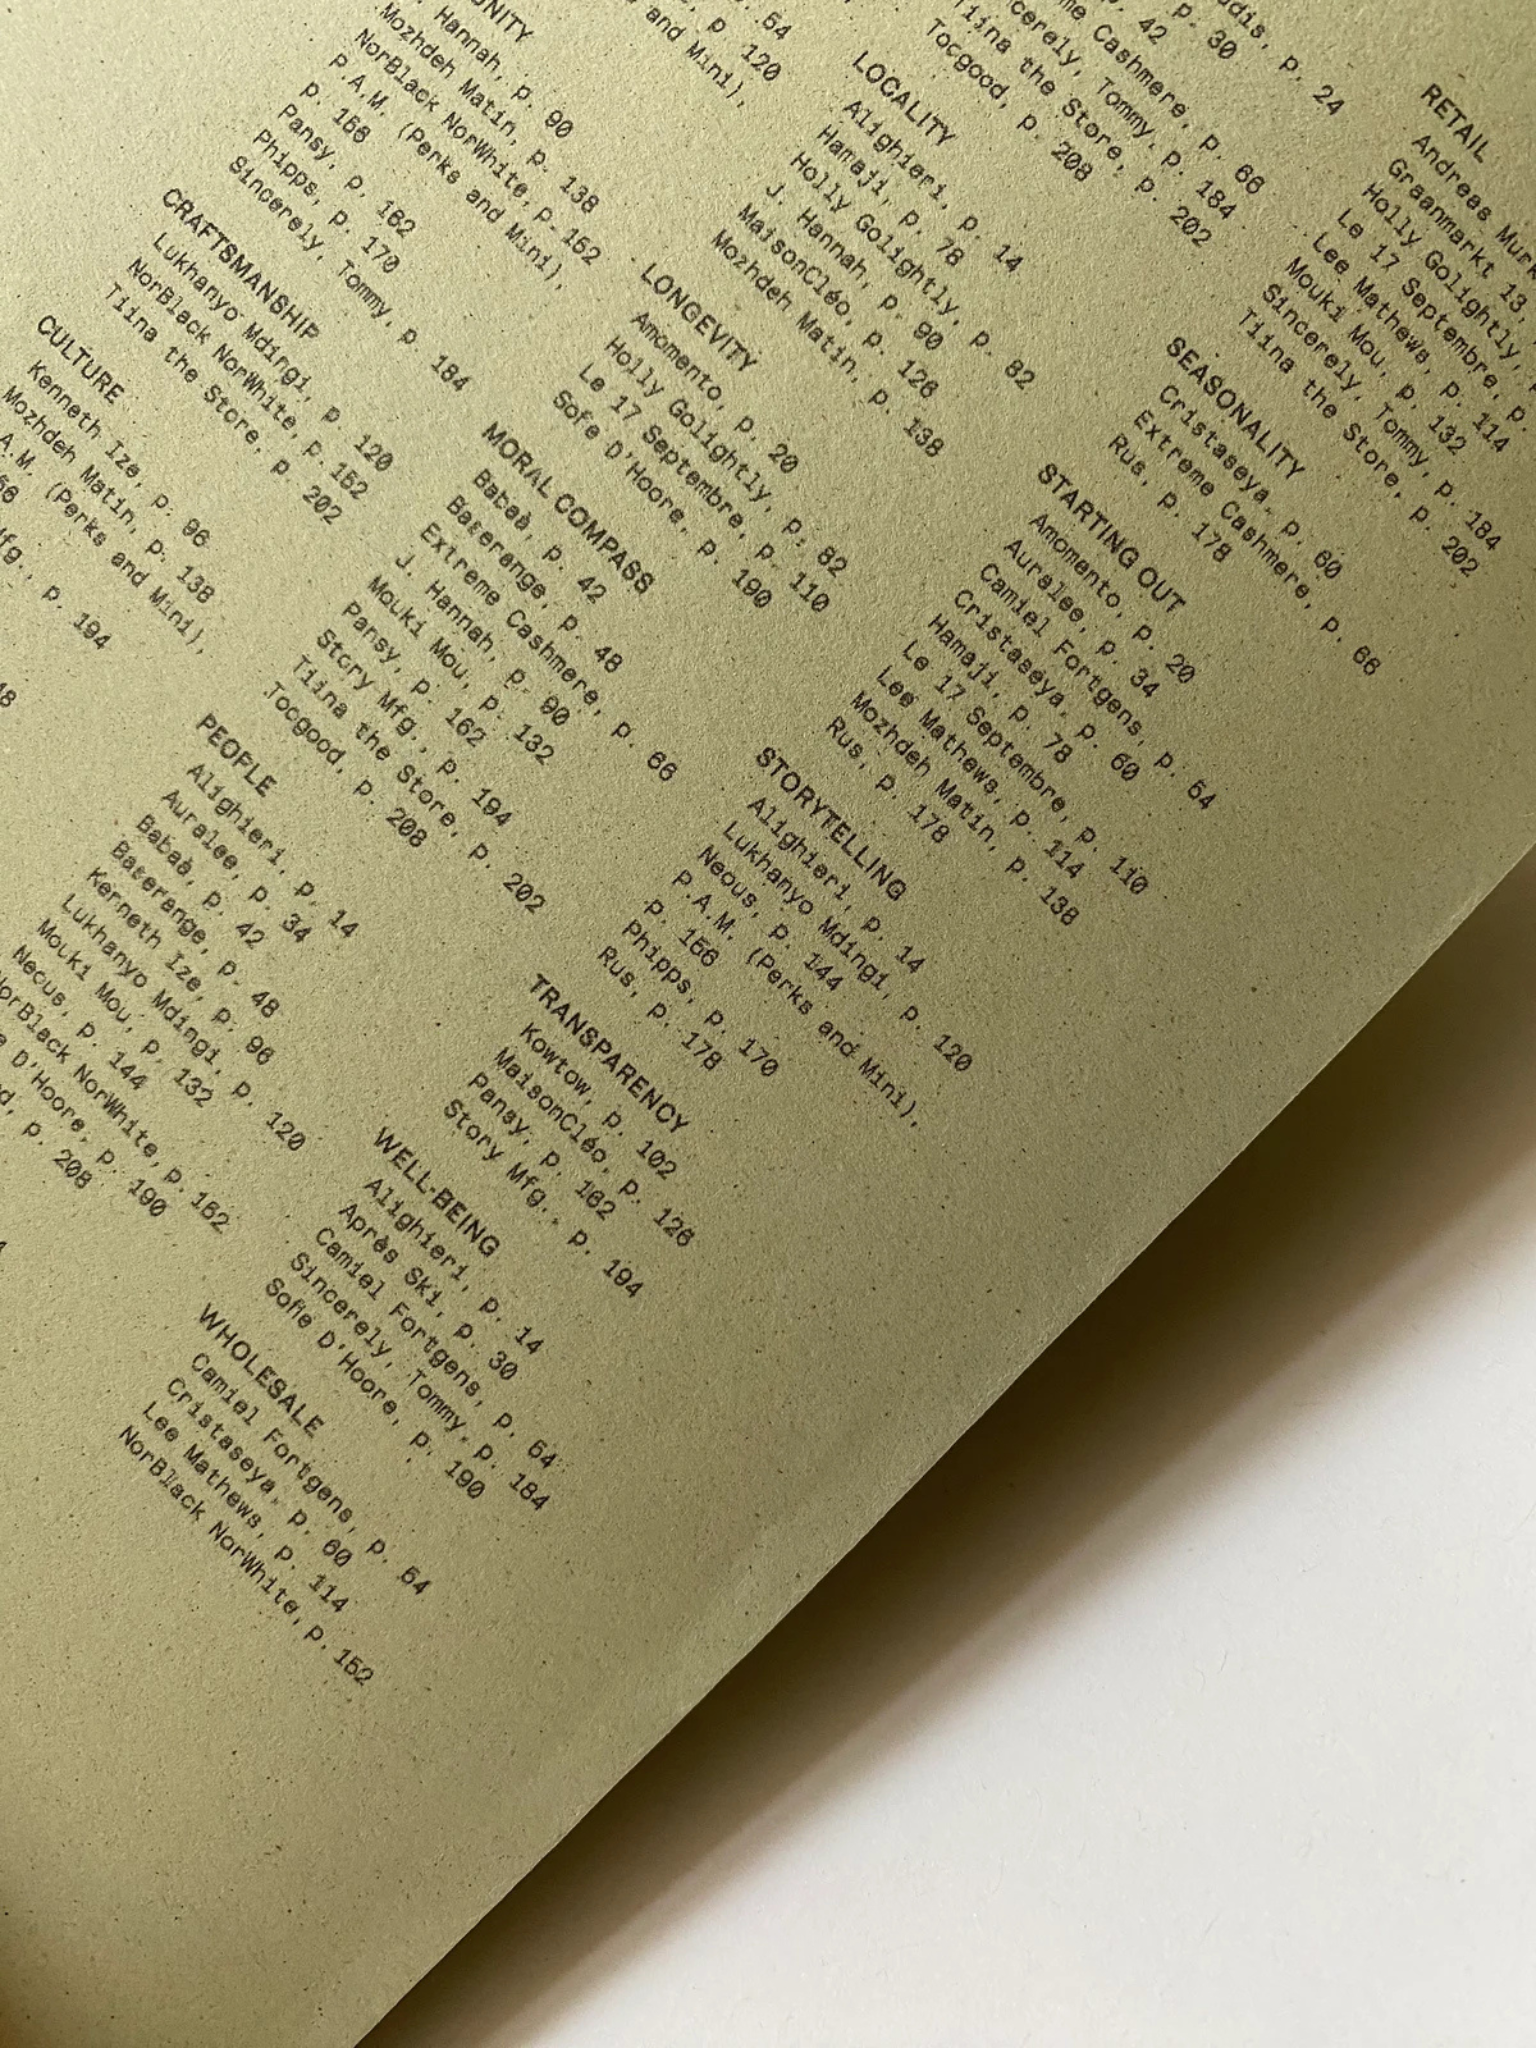 p. 54
p. 120
and Mini),
NITY
Hannah, p. 90
Mozhdeh Matin, p. 138
NorBlack NorWhite, p. 152
P.A.M. (Perks and Mini),
p. 156
Pansy, p. 162
Phipps, p. 170
Sincerely, Tommy, p. 184
CRAFTSMANSHIP
Lukhanyo Mdingi, p. 120
NorBlack NorWhite, p. 152
Tiina the Store, p. 202
CULTURE
Kenneth Ize, p. 96
Mozhdeh Matin, p. 138
A.M. (Perks and Mini),
56
Mfg., p. 194
48
udis, p. 24
p. 30
p. 42
me Cashmere, p. 66
ncerely, Tommy, p. 184
Tiina the Store, p. 202
Toogood, p. 208
LOCALITY
Alighieri, p. 14
Hamaji, p. 78
Holly Golightly, p. 82
J. Hannah, p. 90
MaisonCléo, p. 126
Mozhdeh Matin, p. 138
LONGEVITY
Amomento, p. 20
Holly Golightly, p. 82
Le 17 Septembre, p. 110
Sofie D'Hoore, p. 190
MORAL COMPASS
Babaà, p. 42
Baserange, p. 48
Extreme Cashmere, p. 66
J. Hannah, p. 90
Mouki Mou, p. 132
Pansy, p. 162
Story Mfg., p. 194
Tiina the Store, p. 202
Toogood, p. 208
PEOPLE
Alighieri, p. 14
Auralee, p. 34
Babaà, p. 42
Baserange, p. 48
Kenneth Ize, p. 96
Lukhanyo Mdingi, p. 120
Mouki Mou, p. 132
Neous, p. 144
NorBlack NorWhite, p. 152
e D'Hoore, p. 190
d, p. 208
RETAIL
Andrees Murk
Graanmarkt 13,
Holly Golightly,
Le 17 Septembre, p.
Lee Mathews, p. 114
Mouki Mou, p. 132
Sincerely, Tommy, p. 184
Tiina the Store, p. 202
SEASONALITY
Cristaseya, p. 60
Extreme Cashmere, p. 66
Rus, p. 178
STARTING OUT
Amomento, p. 20
Auralee, p. 34
Camiel Fortgens, p. 54
Cristaseya, p. 60
Hamaji, p. 78
Le 17 Septembre, p. 110
Lee Mathews, p. 114
Mozhdeh Matin, p. 138
Rus, p. 178
STORYTELLING
Alighieri, p. 14
Lukhanyo Mdingi, p. 120
Neous, p. 144
P.A.M. (Perks and Mini),
p. 156
Phipps, p. 170
Rus, p. 178
TRANSPARENCY
Kowtow, p. 102
MaisonCléo, p. 126
Pansy, p. 162
Story Mfg., p. 194
WELL-BEING
Alighieri, p. 14
Après Ski, p. 30
Camiel Fortgens, p. 54
Sincerely, Tommy, p. 184
Sofie D'Hoore, p. 190
WHOLESALE
Camiel Fortgens, p. 54
Cristaseya, p. 60
Lee Mathews, p. 114
NorBlack NorWhite, p. 152